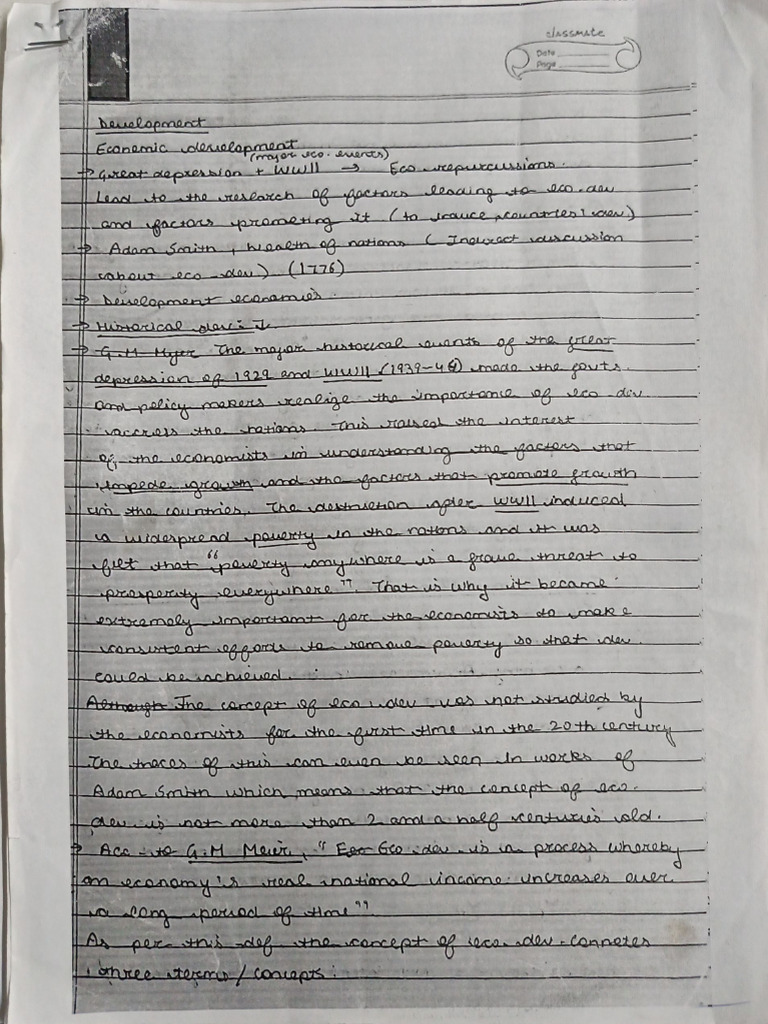 classmate
Date
Page
Development
Economic development
(major eco. events)
→ Great depression + WWII → Eco repurcussions.
Lead to the research of factors leading to eco. dev
and factors promoting it (to countries' dev)
→ Adam Smith, Wealth of nations (Indirect discussion
about eco dev) (1776)
→ Development economics.
→ Historical
→ G.M Myer The major historical events of the great
depression of 1929 and WWII (1939-45) made the govts.
and policy makers realize the importance of eco dev.
accross the nations. This raised the interest
of the economists in understanding the factors that
impede growth and the factors that promote growth
in the countries. The destruction after WWII induced
a widespread poverty in the nations and it was
felt that "poverty anywhere is a grave threat to
prosperity everywhere". That is why it became
extremely important for the economists to make
consistent efforts to remove poverty so that dev.
could be achieved.
Although The concept of eco dev was not studied by
the economists for the first time in the 20th century
The traces of this can even be seen in works of
Adam Smith which means that the concept of eco.
dev. is not more than 2 and a half centuries old.
→ Acc. to G.M Meier, "Eco Eco dev. is a process whereby
an economy's real national income increases over
a long period of time"
As per this def the concept of eco. dev. connotes
three terms/concepts: